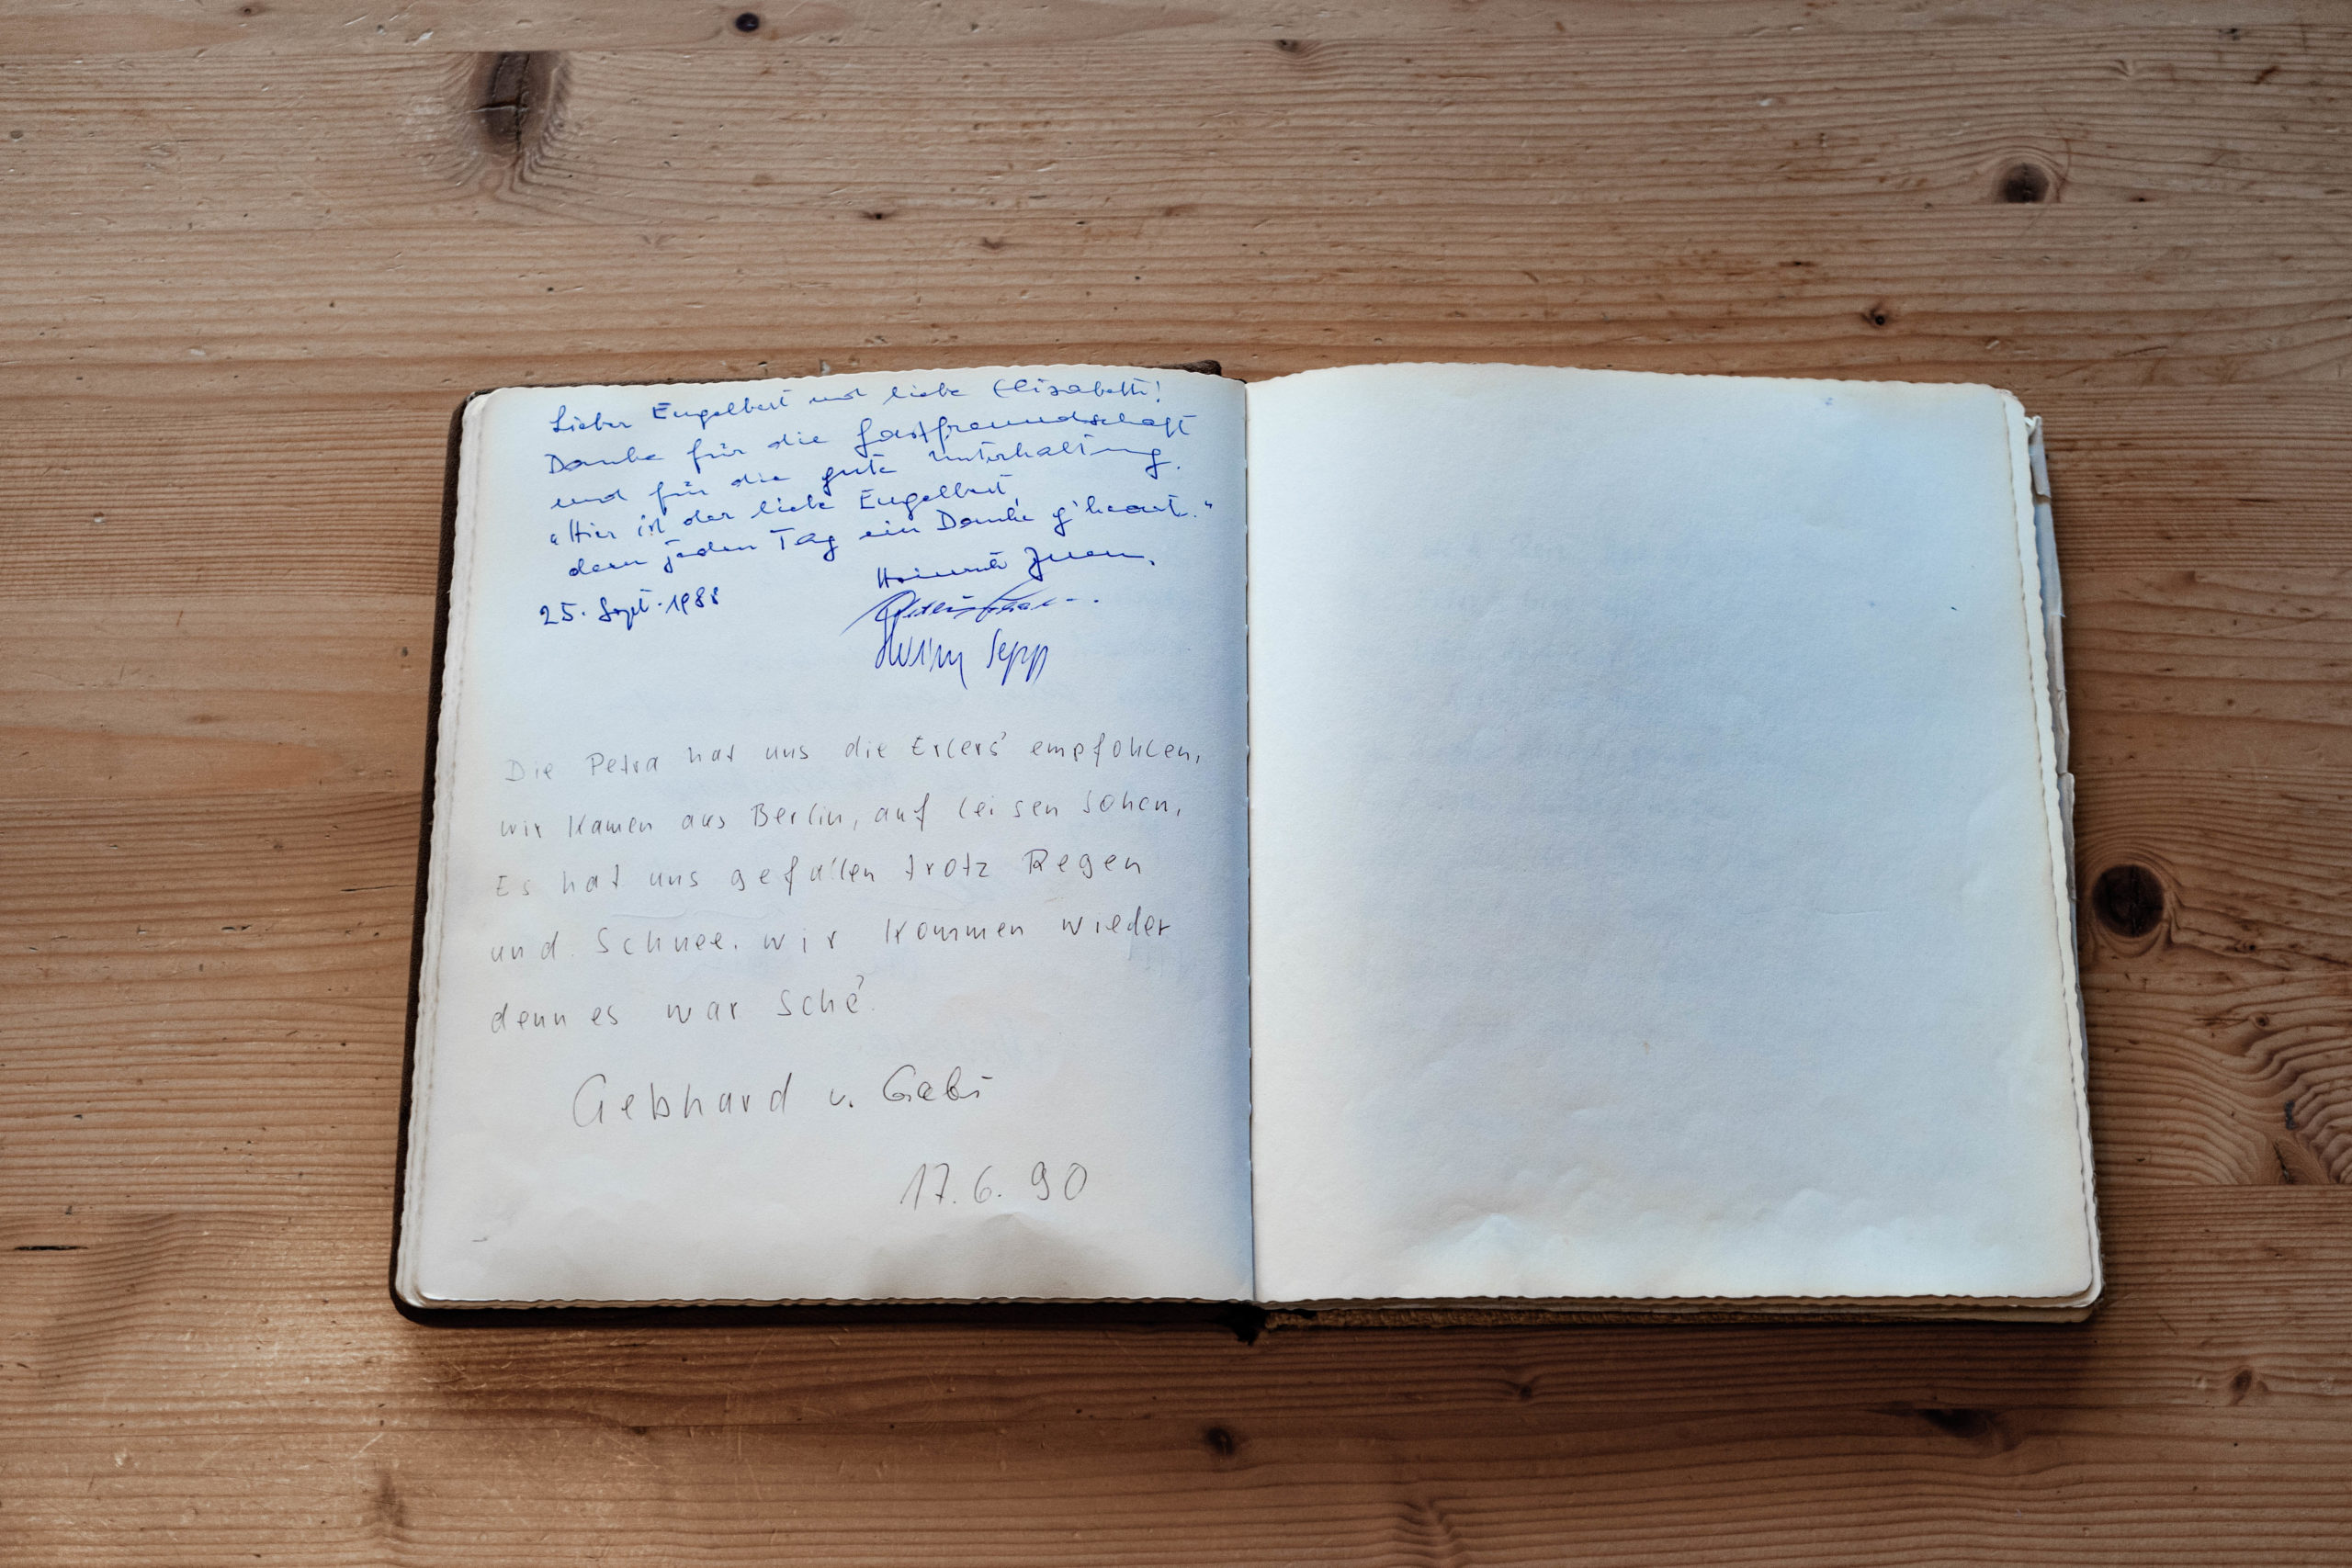 Lieber Engelbert und liebe Elisabeth!
Danke für die Gastfreundschaft
und für die gute Unterhaltung.
„Hier ist der liebe Engelbert,
dem jeden Tag ein Danke g'heart."
25. Sept. 1988
Sepp
Die Petra hat uns die Erlers' empfohlen,
wir kamen aus Berlin, auf leisen Sohen,
Es hat uns gefallen trotz Regen
und Schnee. wir kommen wieder
denn es war Sche'
Gebhard u. Gabi
17.6.90